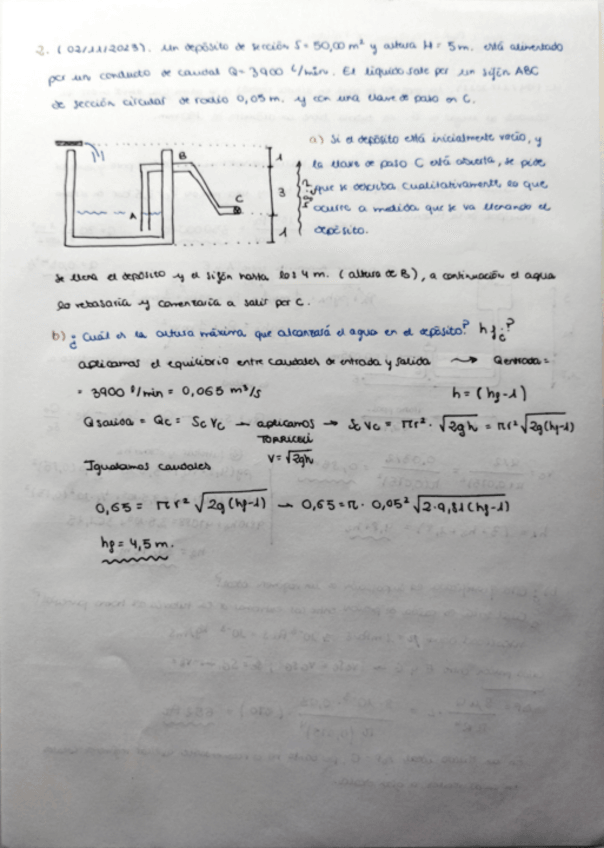 2. (02/11/2023). Un depósito de sección S = 50,00 m² y altura H = 5m. está alimentado
por un conducto de caudal Q = 3900 l/min. El líquido sale por un sifón ABC
de sección circular de radio 0,05 m. y con una llave de paso en C.
a) Si el depósito está inicialmente vacío, y
la llave de paso C está abierta, se pide
que se describa cualitativamente lo que
ocurre a medida que se va llenando el
depósito.
B
A
C
1
3
1
Se llena el depósito y el sifón hasta los 4 m. (altura de B), a continuación el agua
lo rebasaría y comenzaría a salir por C.
b) ¿Cuál es la altura máxima que alcanzará el agua en el depósito? hf¿?
aplicamos el equilibrio entre caudales de entrada y salida → Qentrada =
= 3900 l/min = 0,065 m³/s
h = (hf-1)
Qsalida = Qc = Sc Vc → aplicamos → Sc Vc = πr² · √2gh = πr² √2g(hf-1)
TORRICELI
V = √2gh
Igualamos caudales
0,65 = πr² √2g(hf-1) → 0,65 = π · 0,05² √2·9,81(hf-1)
hf = 4,5 m.